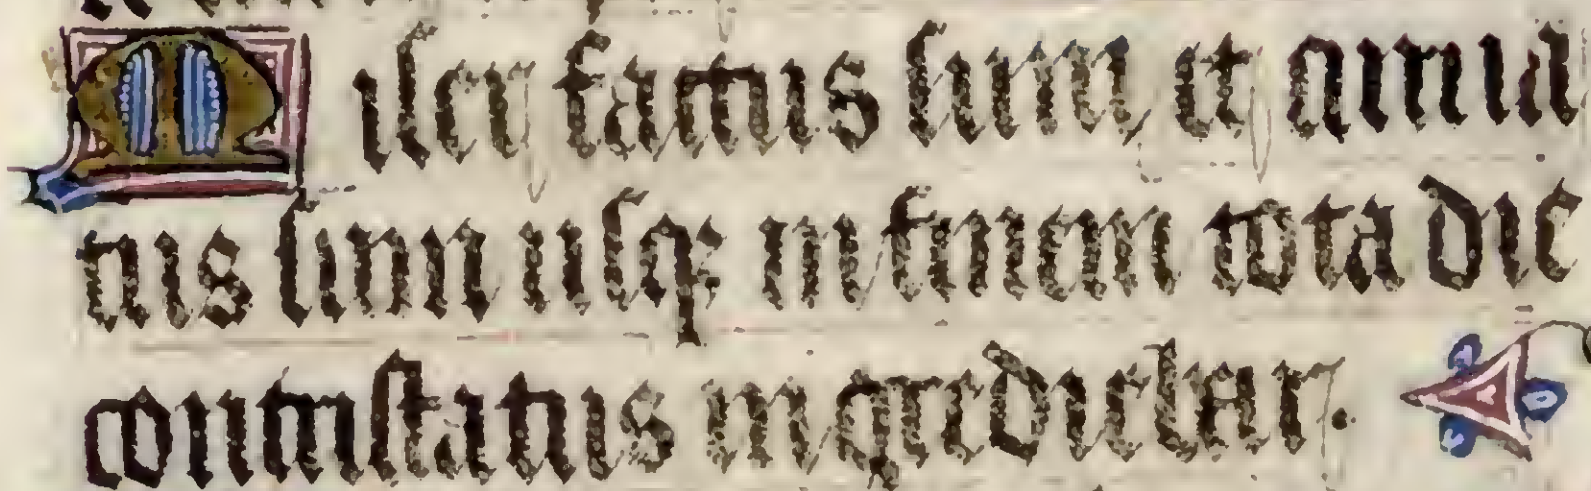 Miser factus sum et curua
tus sum usqꝫ in finem tota die
contristatus ingrediebar.